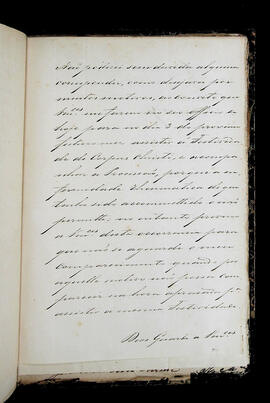 Não poderei sem duvida alguma
corresponder, como desejava por
muitos motivos, ao convite que
V.ces me fazem em seo officio de
hoje para no dia 3 do proximo
futuro mez assistir a Festivida
de de Corpus Christi, e acompa
nhar a Procissão, porque a en
fermidade rheumatica de que
tenho sido accommettido o não
permitte, no entanto previno
a V.ces desta occorrencia para
que não se aguarde o meu
comparecimento quando por
aquelle motivo não possa com
parecer na hora aprasada p.a
assistir a mesma Festividade
Deos Guarde a Vm.ces